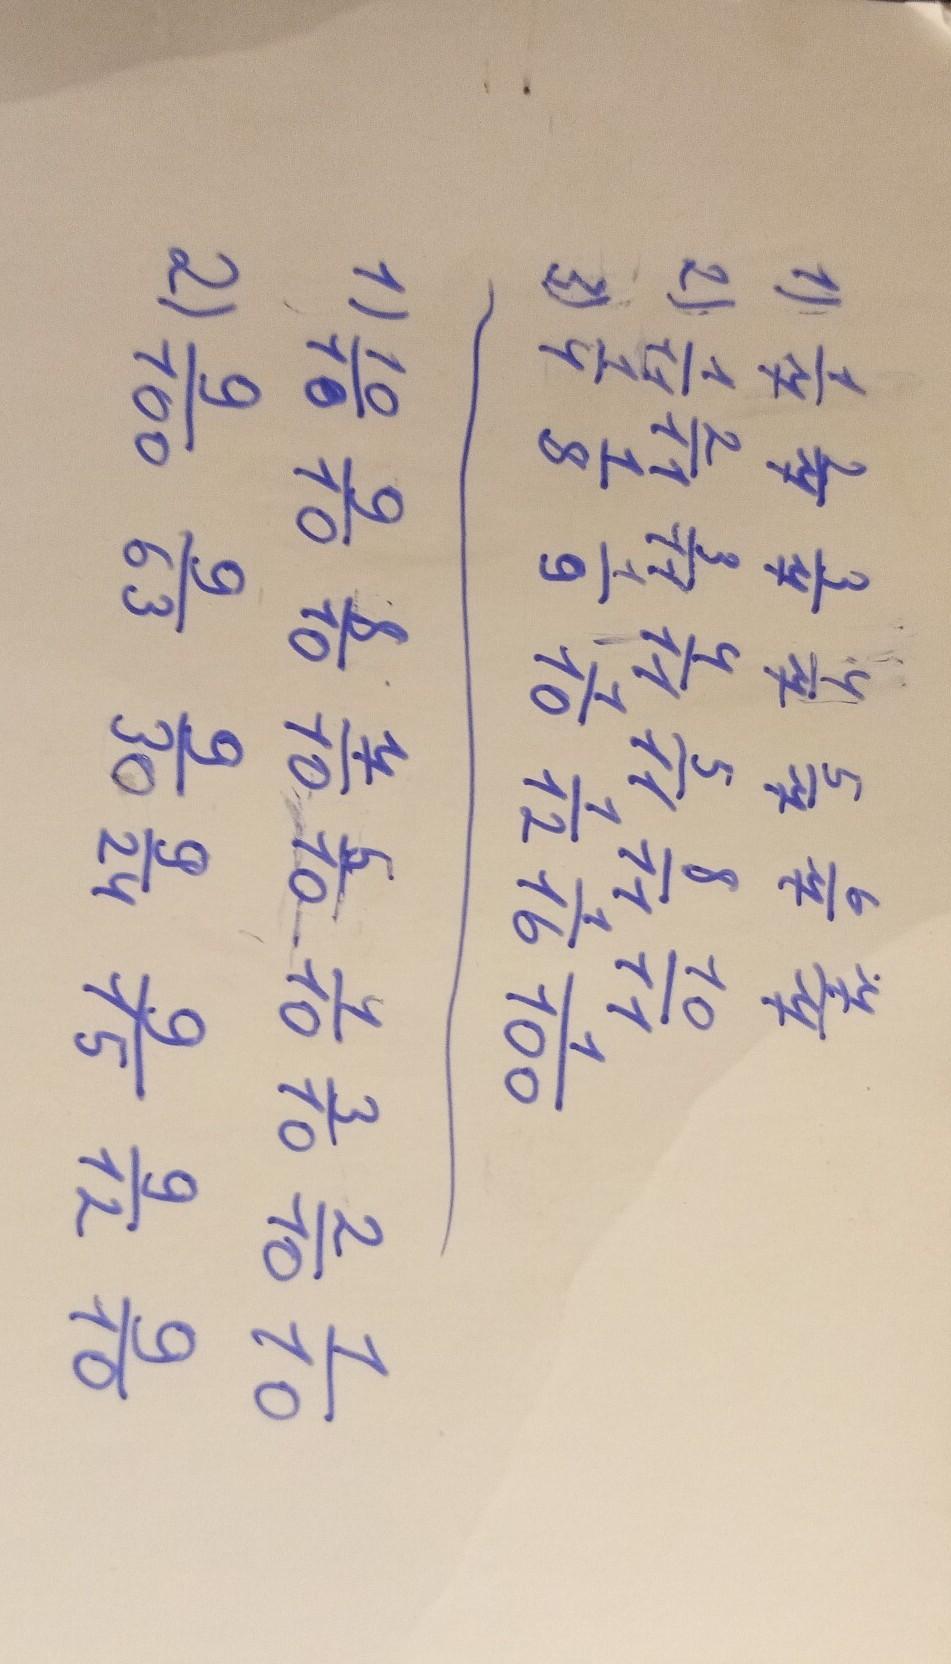 1) 1/7 2/7 3/7 4/7 5/7 6/7 7/7
2) 1/11 2/11 3/11 4/11 5/11 8/11 10/11
3) 1/4 1/8 1/9 1/10 1/12 1/16 1/100
1) 10/10 9/10 8/10 7/10 5/10 4/10 3/10 2/10 1/10
2) 9/100 9/63 9/30 9/24 9/15 9/12 9/10